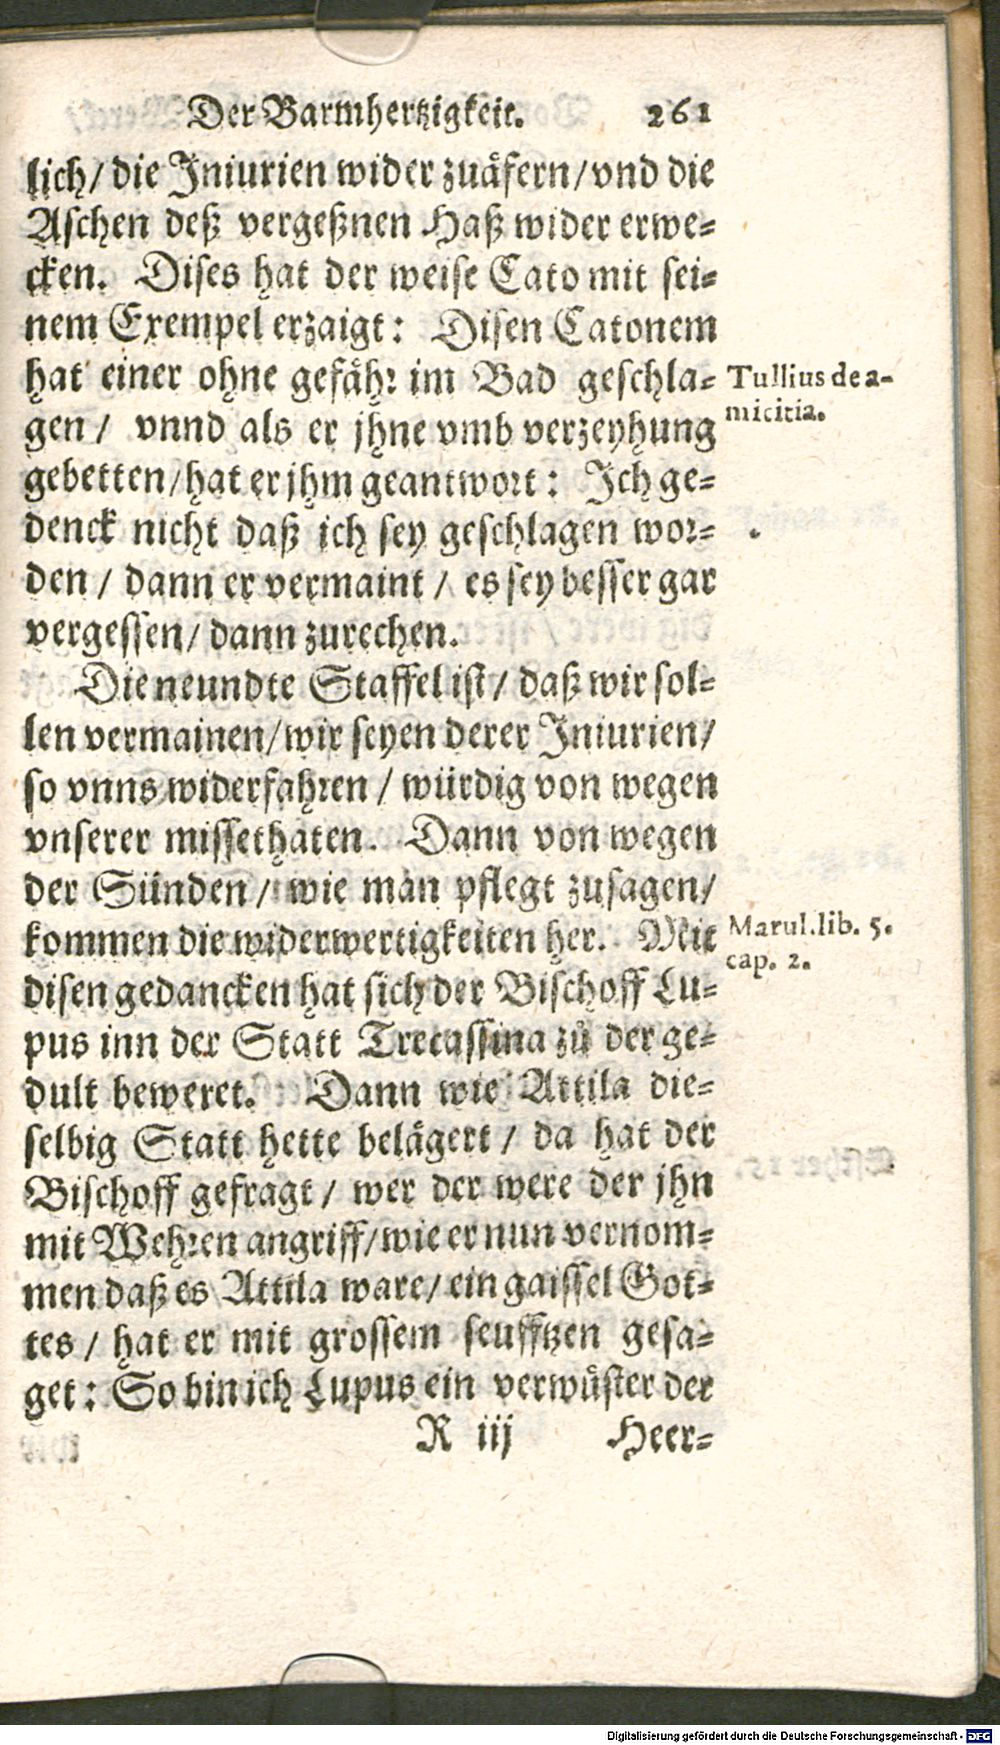 Der Barmhertzigkeit. 261
lich/ die Iniurien wider zuäfern/ vnd die
Aschen deß vergeßnen Haß wider erwe-
cken. Dises hat der weise Cato mit sei-
nem Exempel erzaigt: Disen Catonem
hat einer ohne gefähr im Bad geschla-
Tullius de a-
micitia.
gen/ vnnd als er jhne vmb verzeyhung
gebetten/ hat er jhm geantwort: Ich ge-
denck nicht daß ich sey geschlagen wor-
den/ dann er vermaint/ es sey besser gar
vergessen/ dann zurechen.
Die neundte Staffel ist/ daß wir sol-
len vermainen/ wir seyen derer Iniurien/
so vnns widerfahren/ würdig von wegen
vnserer missethaten. Dann von wegen
der Sünden/ wie man pflegt zusagen/
kommen die widerwertigkeiten her. Mit
Marul. lib. 5.
cap. 2.
disen gedancken hat sich der Bischoff Lu-
pus inn der Statt Trecassina zů der ge-
dult beweret. Dann wie Attila die-
selbig Statt hette belägert/ da hat der
Bischoff gefragt/ wer der were der jhn
mit Wehren angriff/ wie er nun vernom-
men daß es Attila ware/ ein gaissel Got-
tes/ hat er mit grossem seufftzen gesa-
get: So bin ich Lupus ein verwüster der
R iij Heer-
Digitalisierung gefördert durch die Deutsche Forschungsgemeinschaft - DFG